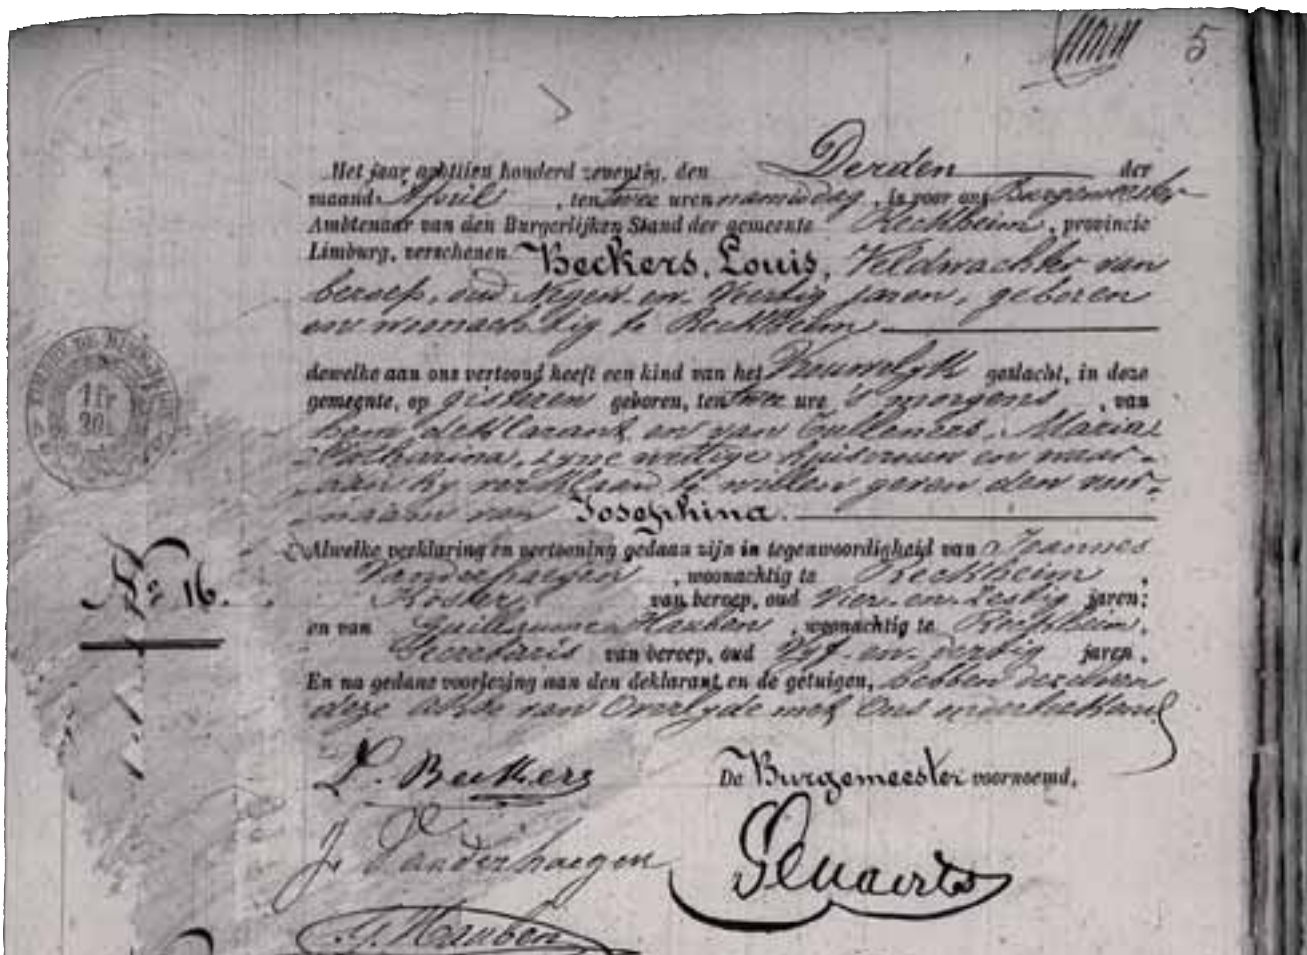 5
Het jaar achttien honderd zeventig, den Derden der
maand April, ten twee uren namiddag, is voor ons Burgemeester
Ambtenaar van den Burgerlijken Stand der gemeente Reckheim, provincie
Limburg, verschenen Beckers, Louis, Veldwachter van
beroep, oud Negen-en-Veertig jaren, geboren
en woonachtig te Reckheim
dewelke aan ons vertoond heeft een kind van het Vrouwelyk geslacht, in deze
gemeente, op gisteren geboren, ten twee ure 's morgens, van
hem deklarant, en van Culleners, Maria
Catharina, zyne wettige huisvrouw en waar-
aan hy verklaard te willen geven den voor-
naam van Josephina.
Alwelke verklaring en vertooning gedaan zijn in tegenwoordigheid van Joannes
Vanderhaegen, woonachtig te Reckheim,
Koster van beroep, oud Vier-en-Zestig jaren;
en van Guillaume Hauben, woonachtig te Reckheim,
Secretaris van beroep, oud Vyf-en-dertig jaren.
En na gedane voorlezing aan den deklarant en de getuigen, hebben dezelven
deze akte van Overlyde met Ons onderteekend
N° 16.
1 fr
20
L. Beckers
De Burgemeester voornoemd,
J. Vanderhaegen
G. Hauben